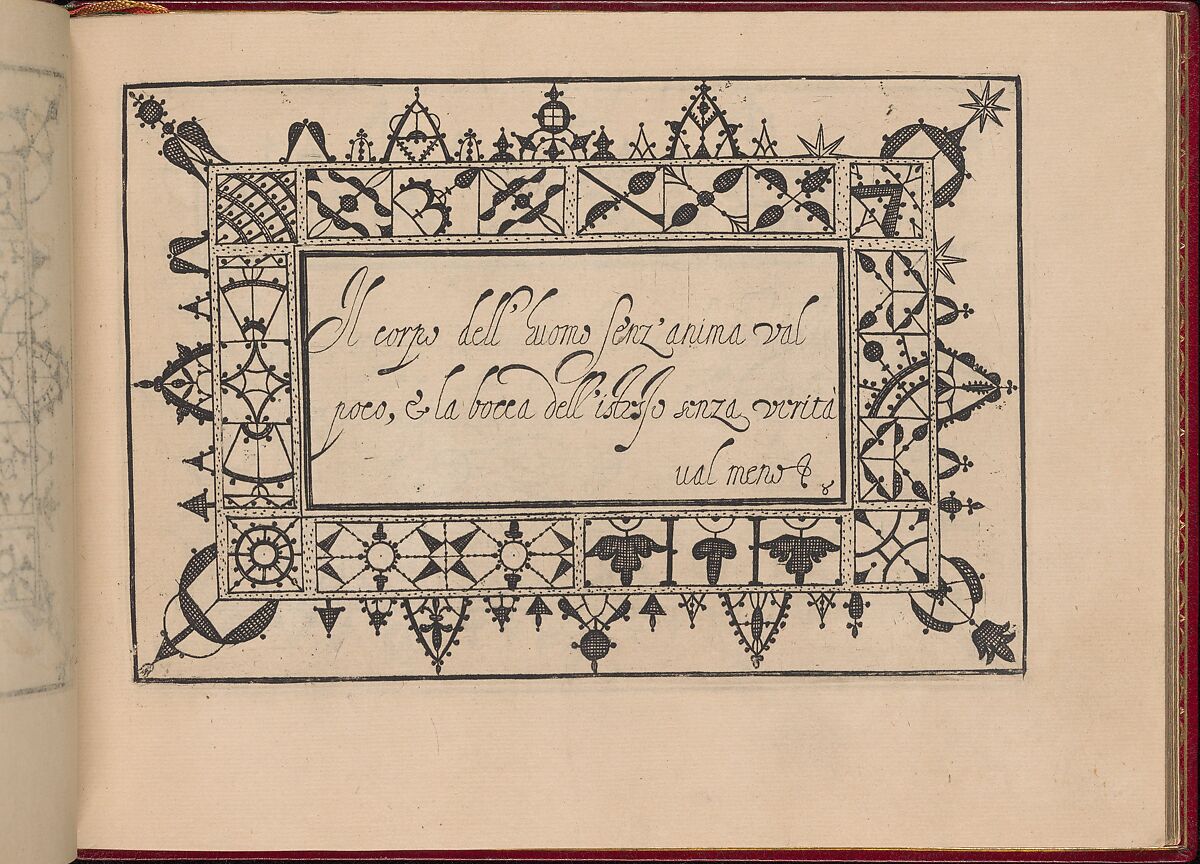 Il corpo dell'huomo senz'anima val
poco, & la bocca dell'istesso senza verità
val meno